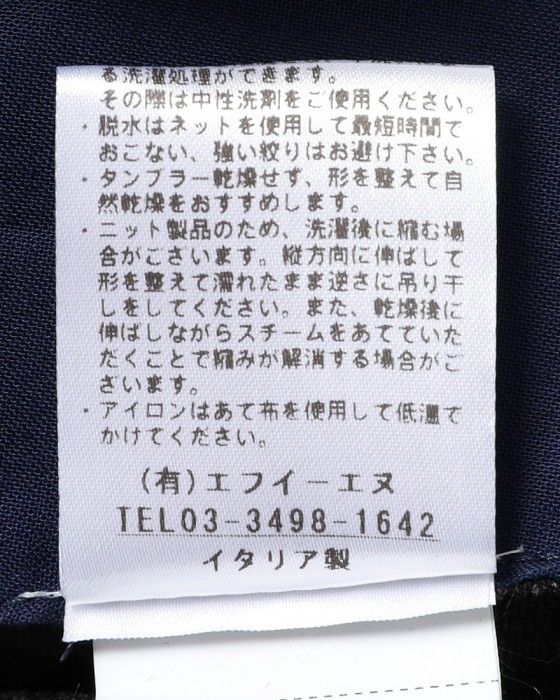 る洗濯処理ができます。
その際は中性洗剤をご使用ください。
・脱水はネットを使用して最短時間で
おこない、強い絞りはお避け下さい。
・タンブラー乾燥せず、形を整えて自
然乾燥をおすすめします。
・ニット製品のため、洗濯後に縮む場
合がございます。縦方向に伸ばして
形を整えて濡れたまま逆さに吊り干
しをしてください。また、乾燥後に
伸ばしながらスチームをあてていた
だくことで縮みが解消する場合がご
ざいます。
・アイロンはあて布を使用して低温で
かけてください。
(有)エフイーエヌ
TEL03-3498-1642
イタリア製